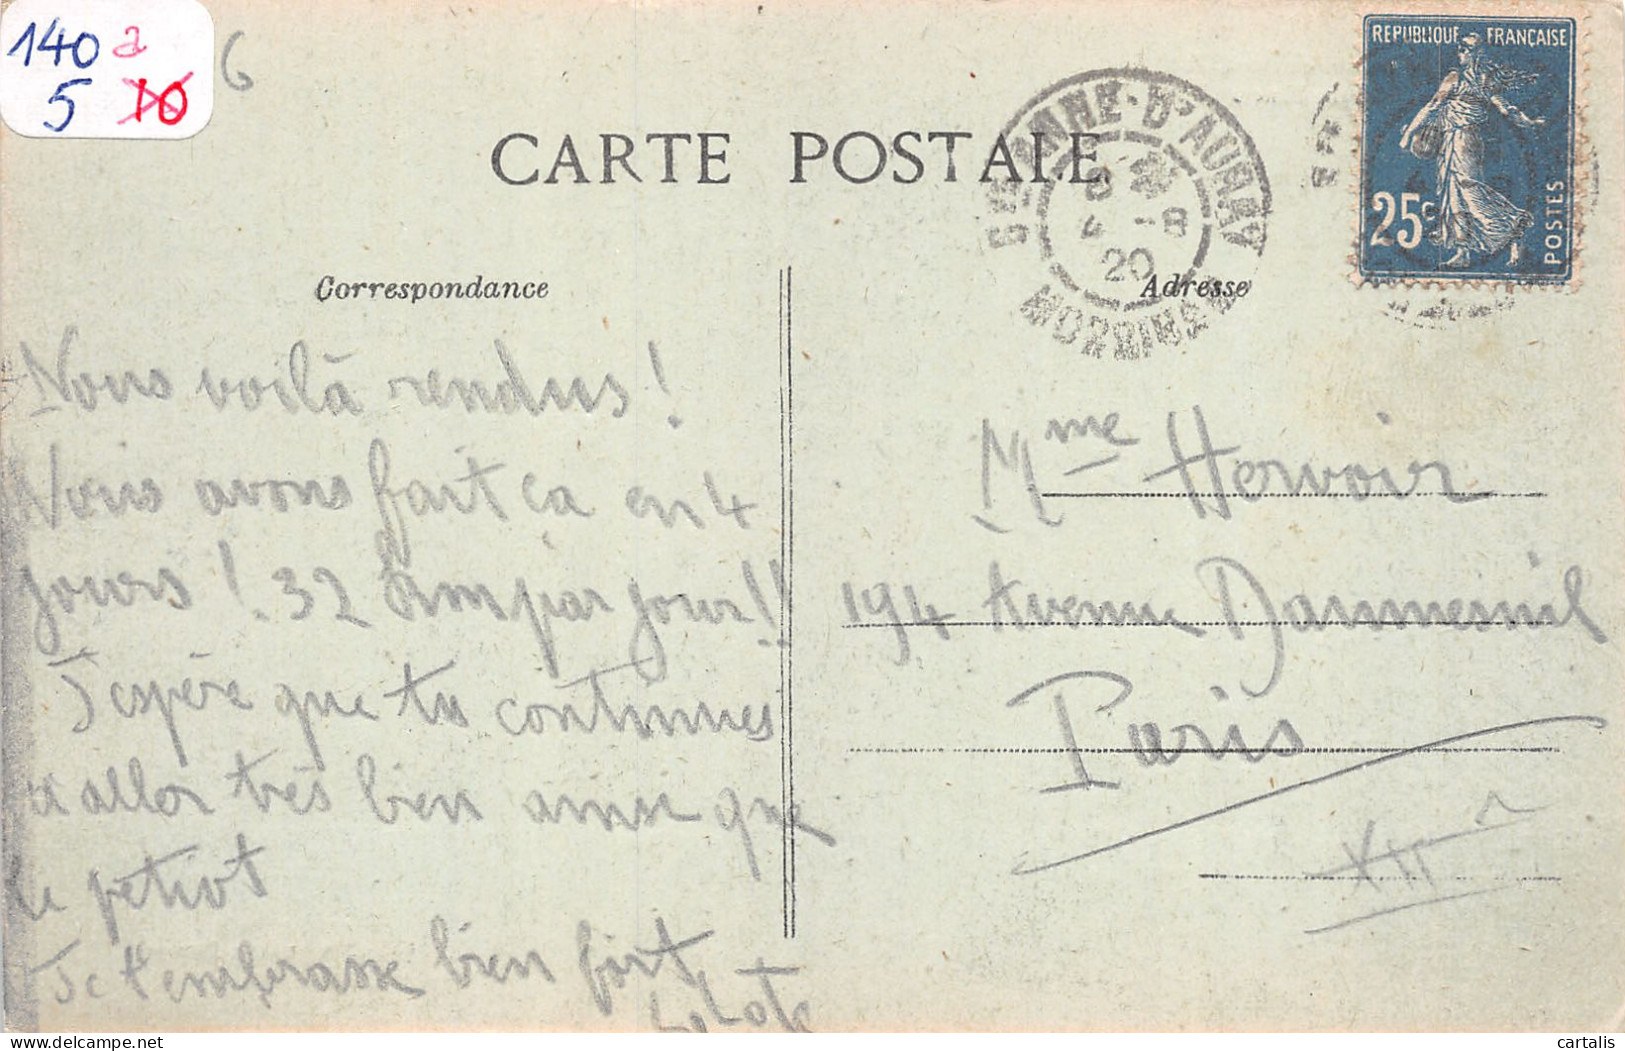 140 a
5 10
6
CARTE POSTALE
STE ANNE-D'AURAY
8
4 -8
20
MORBIHAN
REPUBLIQUE FRANÇAISE
25c
POSTES
Correspondance
Adresse
Nous voilà rendus !
Nous avons fait ça en 4
jours ! 32 km par jour !!
J'espère que tu continues
à aller très bien ainsi que
le petiot
Je t'embrasse bien fort
Mme Hervoir
194 Avenue Daumesnil
Paris
XIIe
cartalis